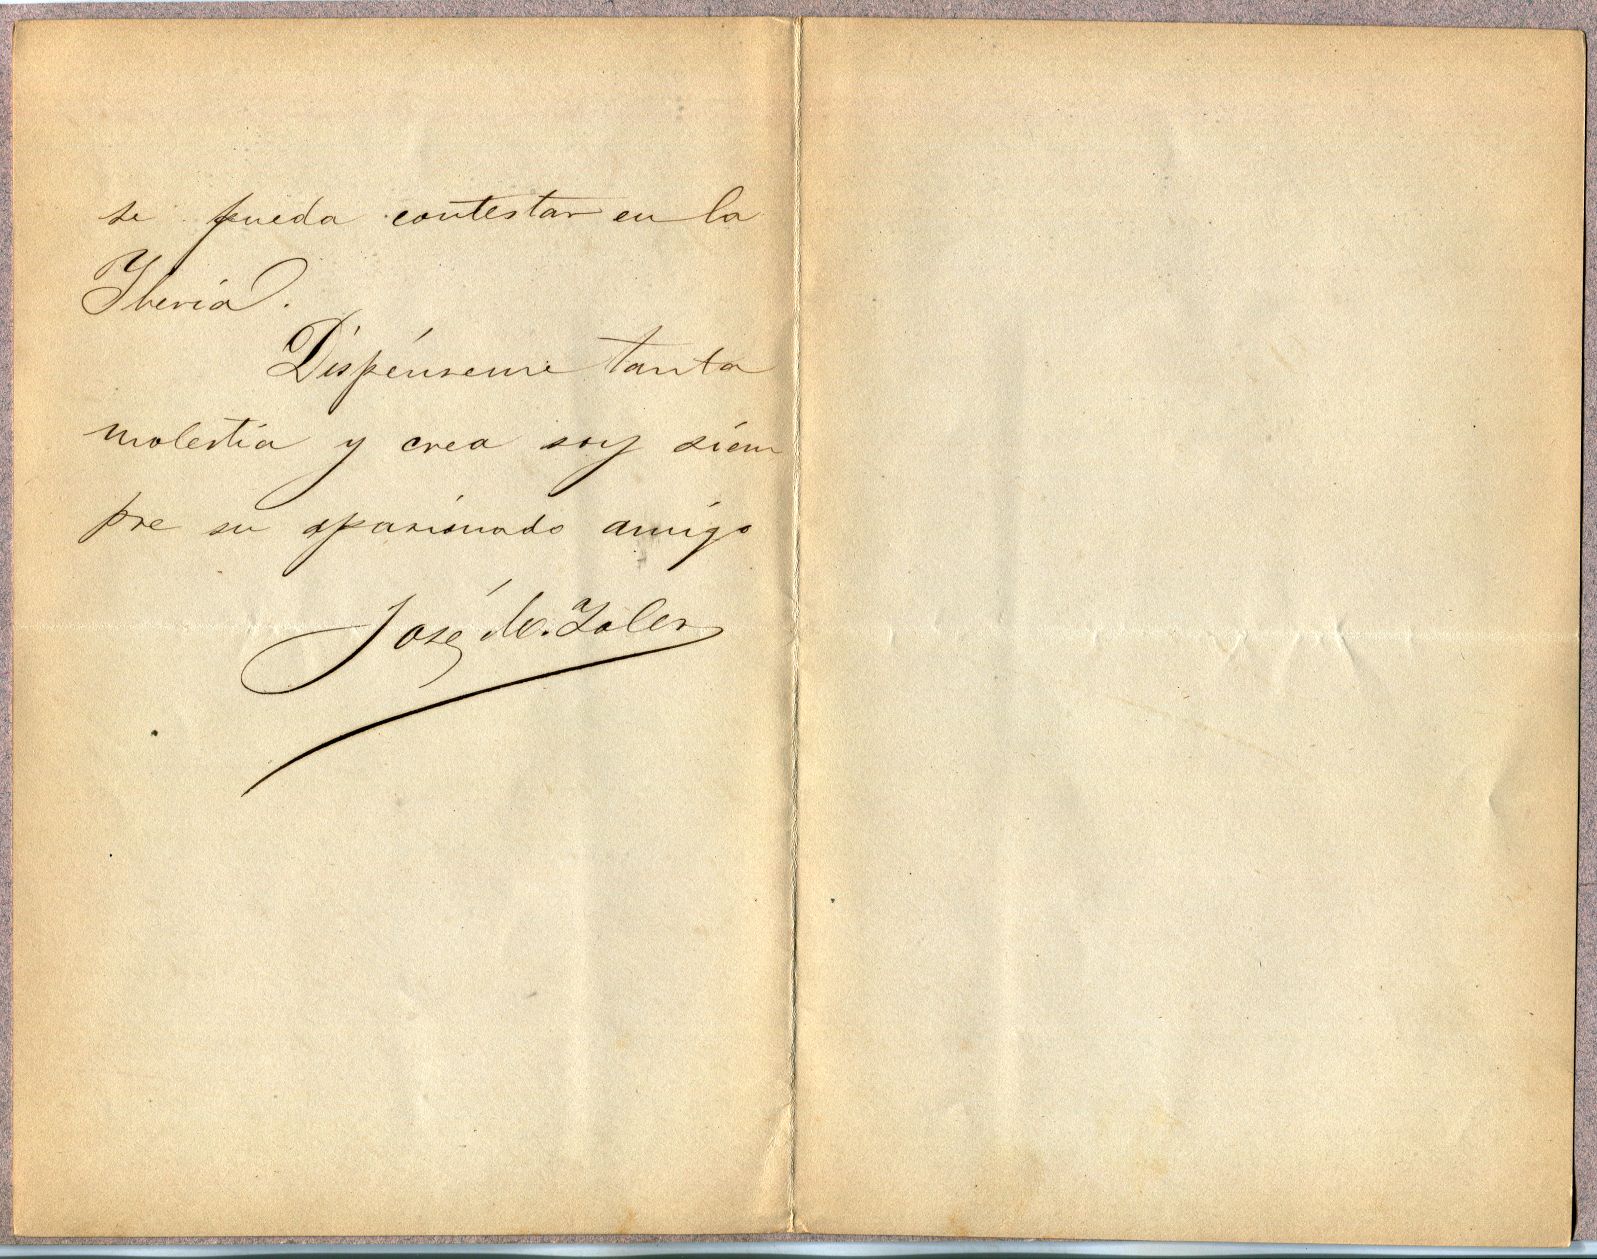 se pueda contestar en la
Yberia.
Dispénseme tanta
molestia y crea soy siem
pre su apasionado amigo
José de